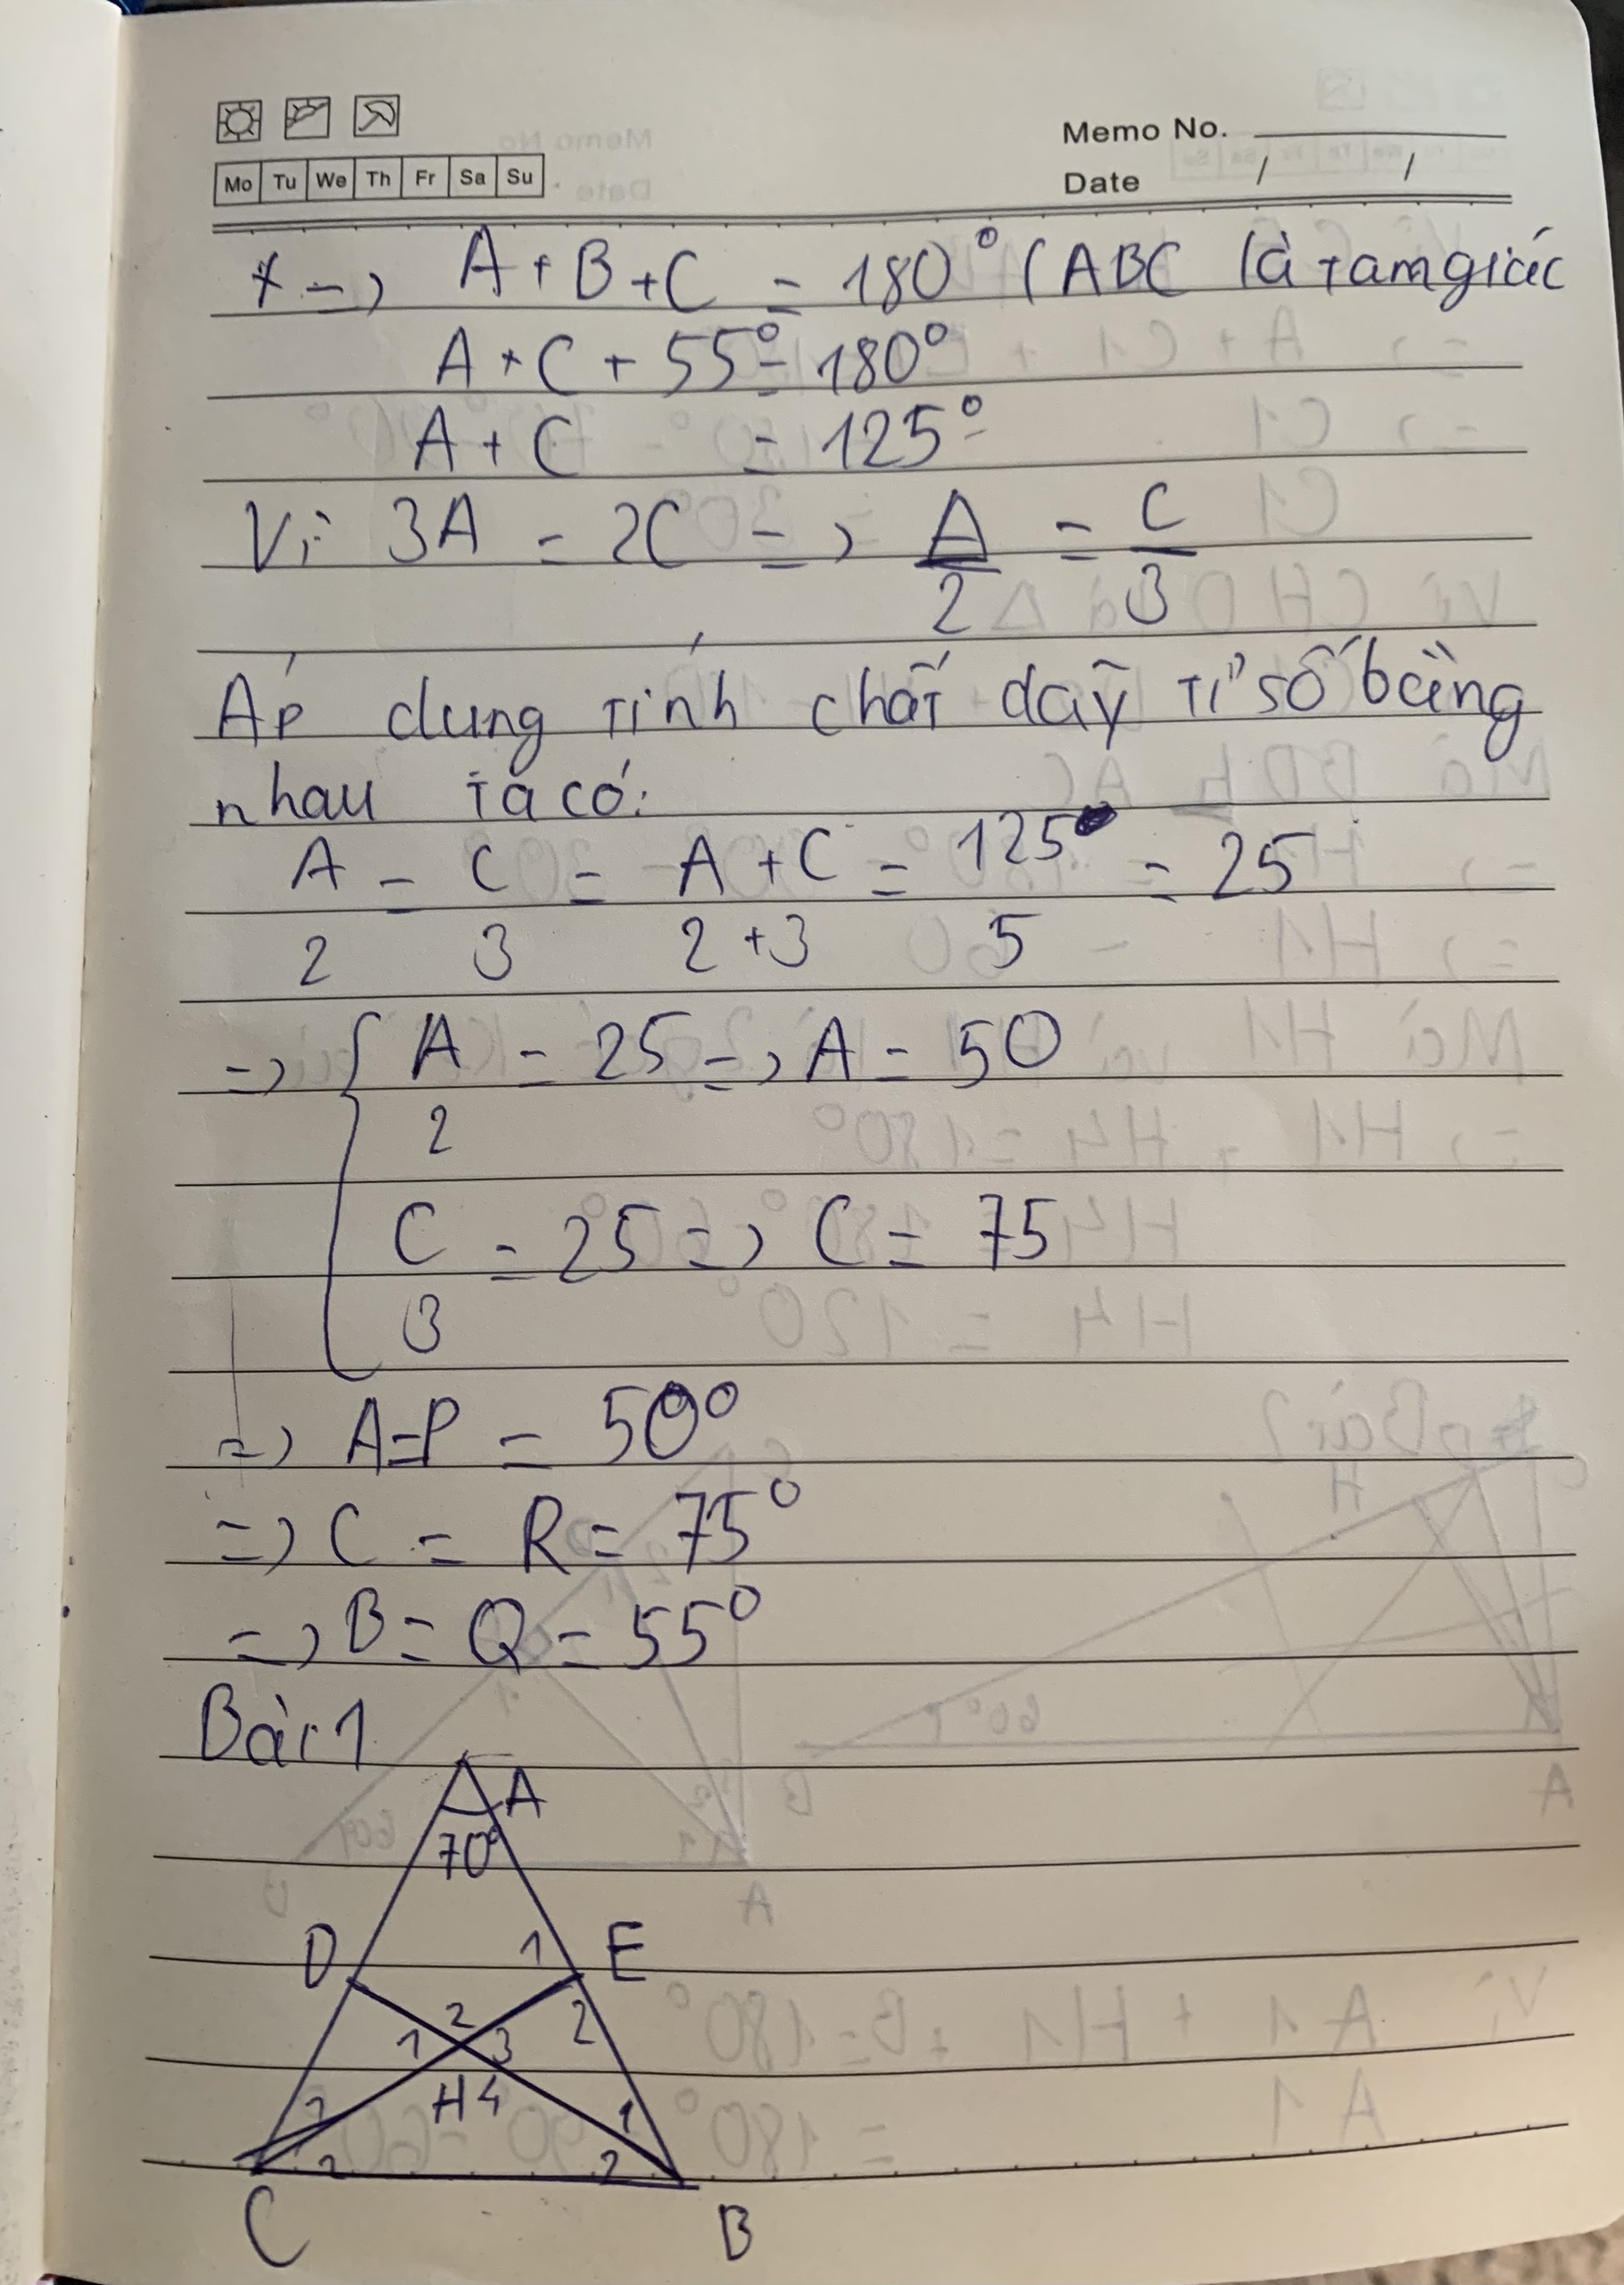 Memo No.
Mo Tu We Th Fr Sa Su
Date / /
* => A + B + C = 180° (ABC là tam giác
A + C + 55° = 180°
A + C = 125°
Vì 3A = 2C => A/2 = C/3
Áp dung tính chất dãy tỉ số bằng
nhau ta có:
A/2 = C/3 = A + C/2 + 3 = 125/5 = 25
=> { A/2 = 25 => A = 50
C/3 = 25 => C = 75
=> A = P = 50°
=> C = R = 75°
=> B = Q = 55°
Bài 1
A
70°
D 1 E
2 2
1 3
H 4
1 1
2 2
C B